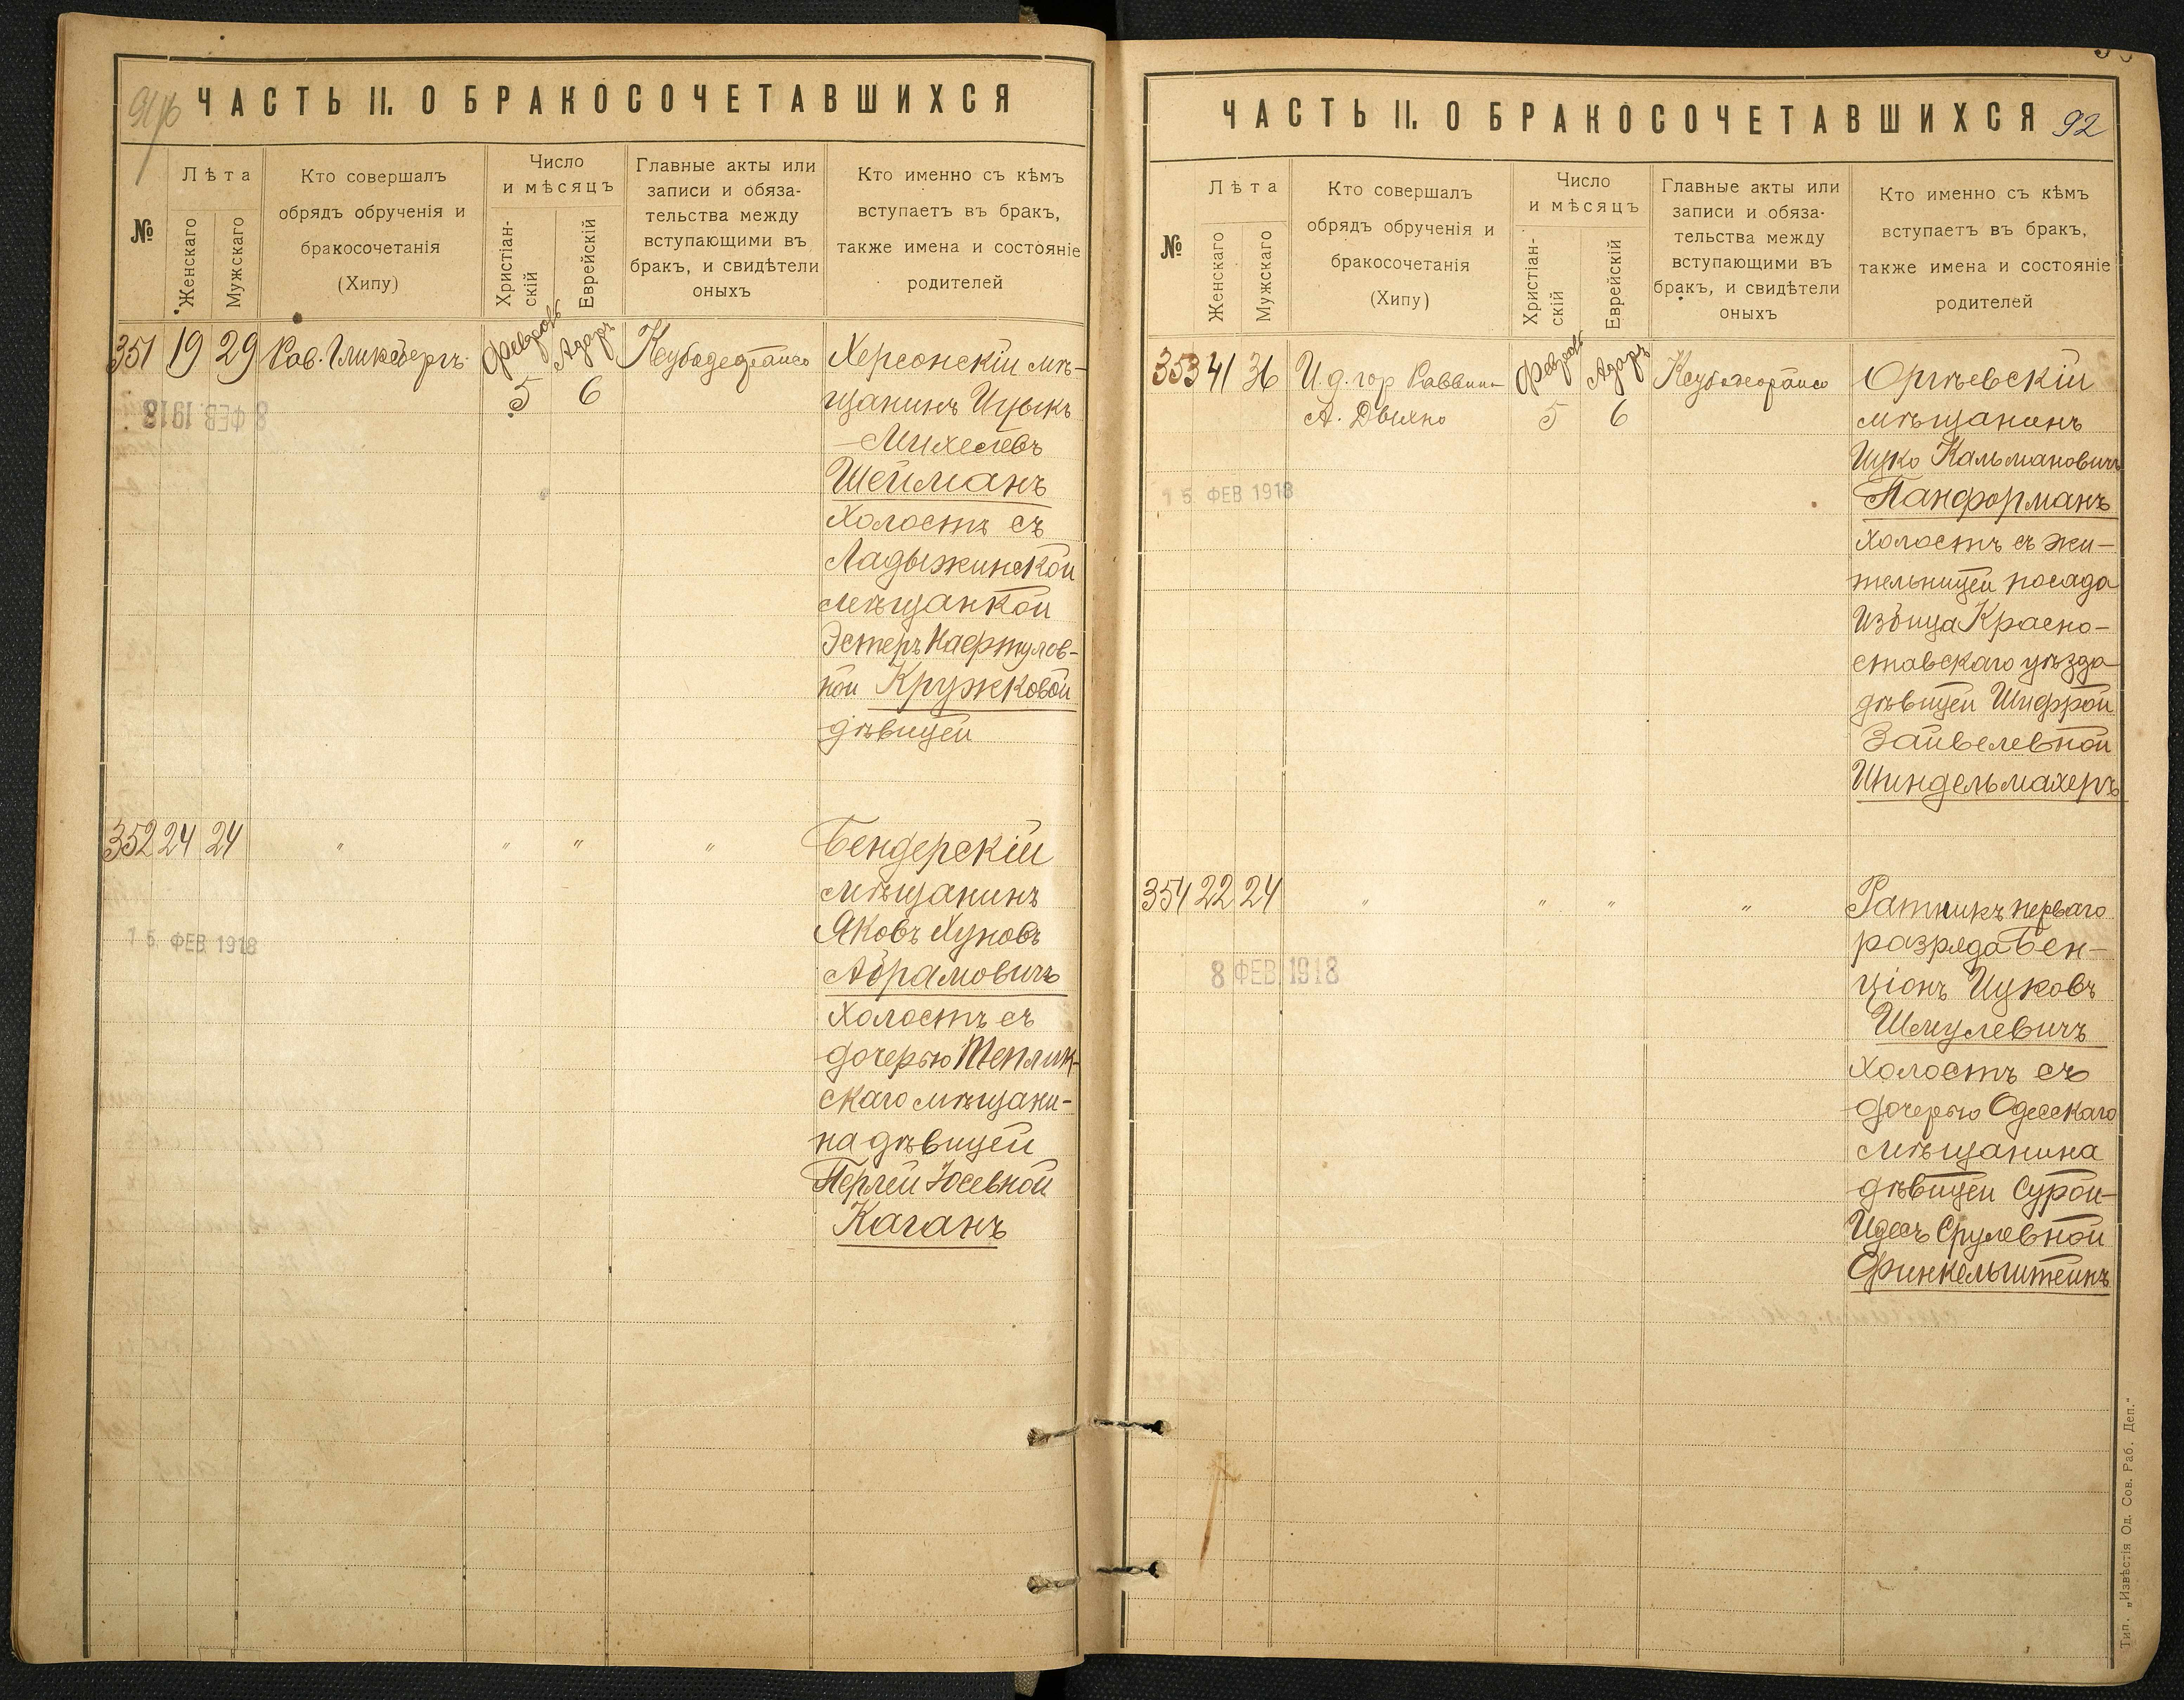 91 об
ЧАСТЬ II. О БРАКОСОЧЕТАВШИХСЯ
№
Лѣта
Женскаго
Мужскаго
Кто совершалъ
обрядъ обрученія и
бракосочетанія
(Хипу)
Число
и мѣсяцъ
Христіан-
скій
Еврейскій
Главные акты или
записи и обяза-
тельства между
вступающими въ
бракъ, и свидѣтели
оныхъ
Кто именно съ кѣмъ
вступаетъ въ бракъ,
также имена и состояніе
родителей
351 19 29 Рав. Гликсбергъ
Февраль 5
Адаръ 6
Херсонскій мѣ-
щанинъ Ицыкъ
-Михелевъ
Шейманъ
холостъ съ
Ладыжинской
мѣщанкой
Эстеръ Нафтулов-
ной Кружковой
дѣвицей
8 ФЕВ 1918
352 24 24 " " " "
Бендерскій
мѣщанинъ
Яковъ Хуновъ
Абрамовичъ
холостъ съ
дочерью Теплик-
скаго мѣщани-
на дѣвицей
Перлей Іосевной
Каганъ
15 ФЕВ 1918
ЧАСТЬ II. О БРАКОСОЧЕТАВШИХСЯ
92
№
Лѣта
Женскаго
Мужскаго
Кто совершалъ
обрядъ обрученія и
бракосочетанія
(Хипу)
Число
и мѣсяцъ
Христіан-
скій
Еврейскій
Главные акты или
записи и обяза-
тельства между
вступающими въ
бракъ, и свидѣтели
оныхъ
Кто именно съ кѣмъ
вступаетъ въ бракъ,
также имена и состояніе
родителей
353 41 36 И.д. гор Раввина
А. Двилно
Февраль 5
Адаръ 6
Оргѣевскій
мѣщанинъ
Ицко Кальмановичъ
Панформанъ
холостъ съ жи-
тельницей посада
Избица Красно-
ставскаго уѣзда
дѣвицей Шифрой
Зайвелевной
Шиндельмахеръ
15 ФЕВ 1918
354 22 24 " " " "
Ратникъ перваго
разряда Бен-
ціонъ Ицковъ
Шмулевичъ
холостъ съ
дочерью Одесскаго
мѣщанина
дѣвицей Сурой-
Идесъ Срулевной
Финкельштейнъ
8 ФЕВ 1918
Тип. „Извѣстія Од. Сов. Раб. Деп."